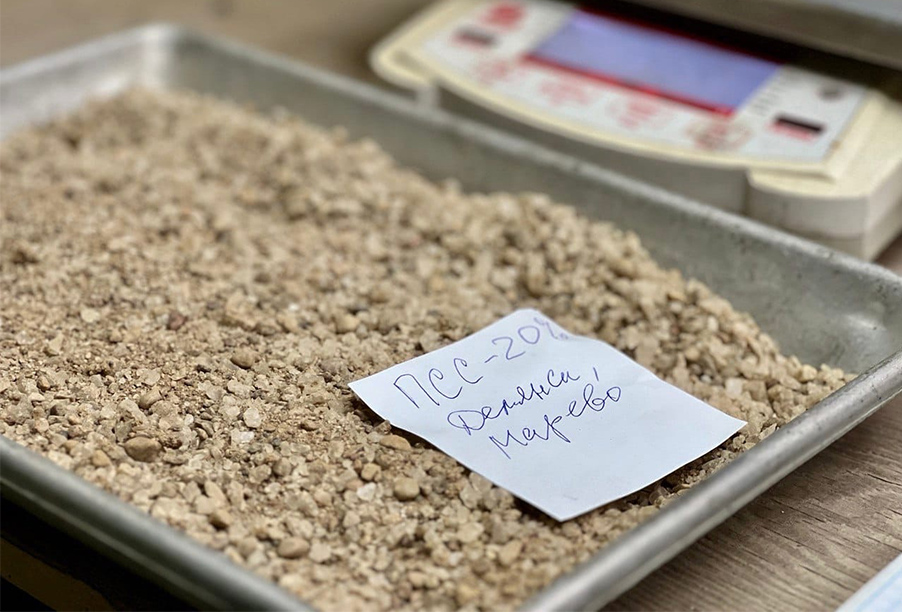 ПСС-20%
Демянск,
Марево